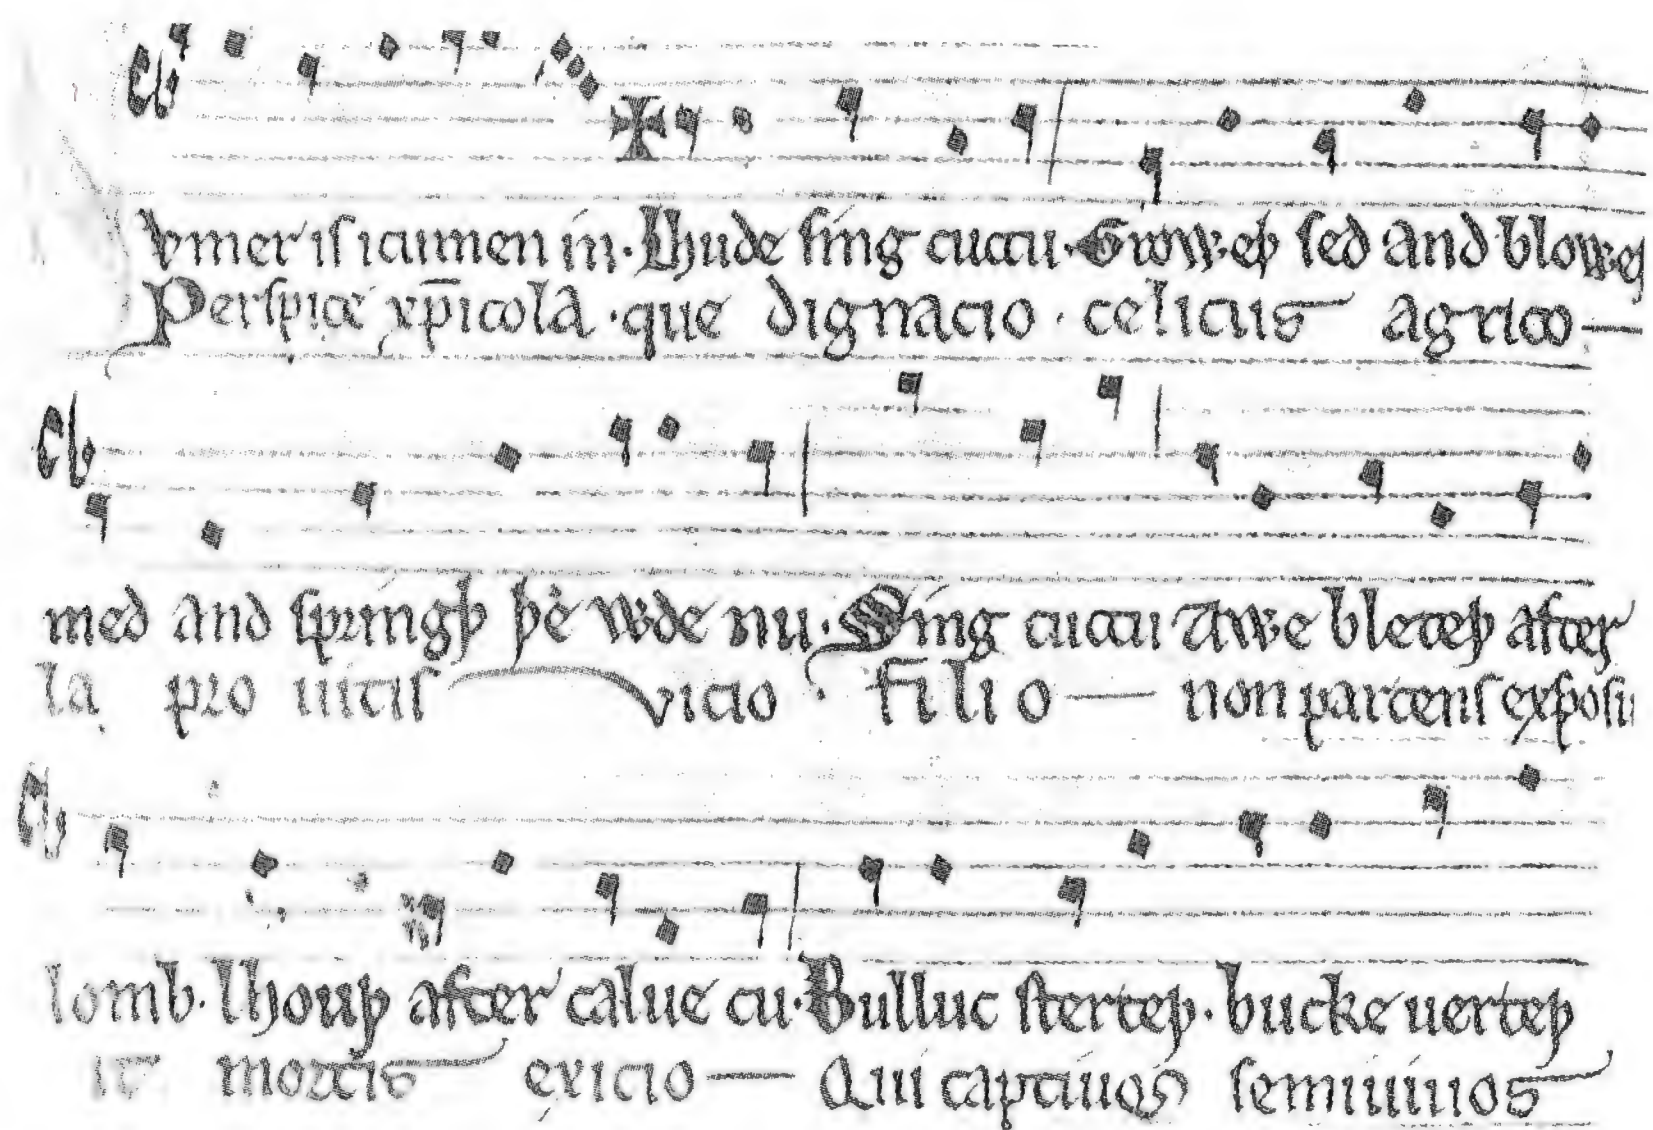 ẏmer iſ icumen in· Lhude ſing cuccu· Groweþ ſed and bloweþ
Perſpice xp̄icola · que dignacio · celicus agrico—
med and ſpringþ þe wde nu· Sing cuccu Awe bleteþ after
la pro uitiſ vicio · filio — non parcenſ expoſu
lomb· lhouþ after calue cu· Bulluc ſterteþ· bucke uerteþ
it mortis exicio — Qui captiuos ſemiuiuos